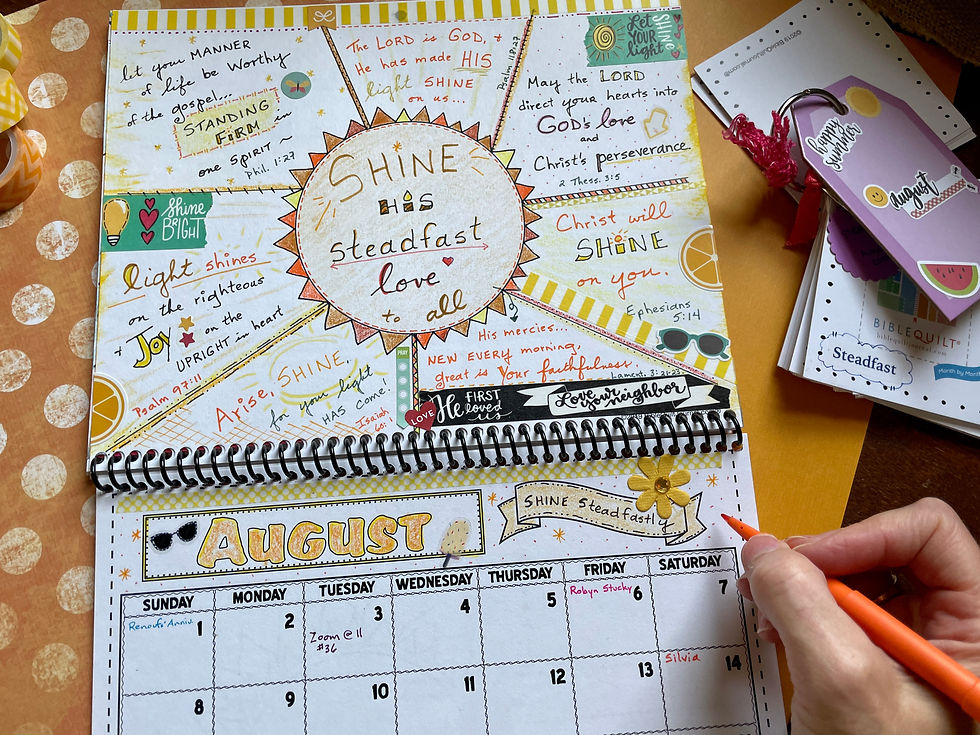 let your MANNER
of life be Worthy
of the gospel...
STANDING
FIRM in
one SPIRIT ~
Phil. 1:27
The LORD is GOD, &
He has made HIS
light SHINE
on us...
Psalm 118:27
Let
YOUR
light
SHINE
May the LORD
direct your hearts into
GOD's love
and
Christ's perseverance
2 Thess. 3:5
SHINE
HIS
steadfast
love
to all
Shine
BRIGHT
light shines
on the righteous
+ JOY on the
UPRIGHT in heart
Psalm 97:11
Christ will
SHINE
on you.
Ephesians
5:14
Arise, SHINE,
for your light
HAS COME!
Isaiah
60:
His mercies...
NEW EVERY morning,
great is Your faithfulness.
Lament. 3:21-23
PRAY
LOVE
He FIRST
loved
us
Love
your neighbor
AUGUST
SHINE Steadfastly
SUNDAY MONDAY TUESDAY WEDNESDAY THURSDAY FRIDAY SATURDAY
Renoufs' Anniv. 1
2
3
Zoom @ 11
#36
4
5
Robyn Stucky 6
7
8
9
10
11
12
13
Silvia 14
happy
summer
august
BIBLEQUILT
Steadfast
Month by Month